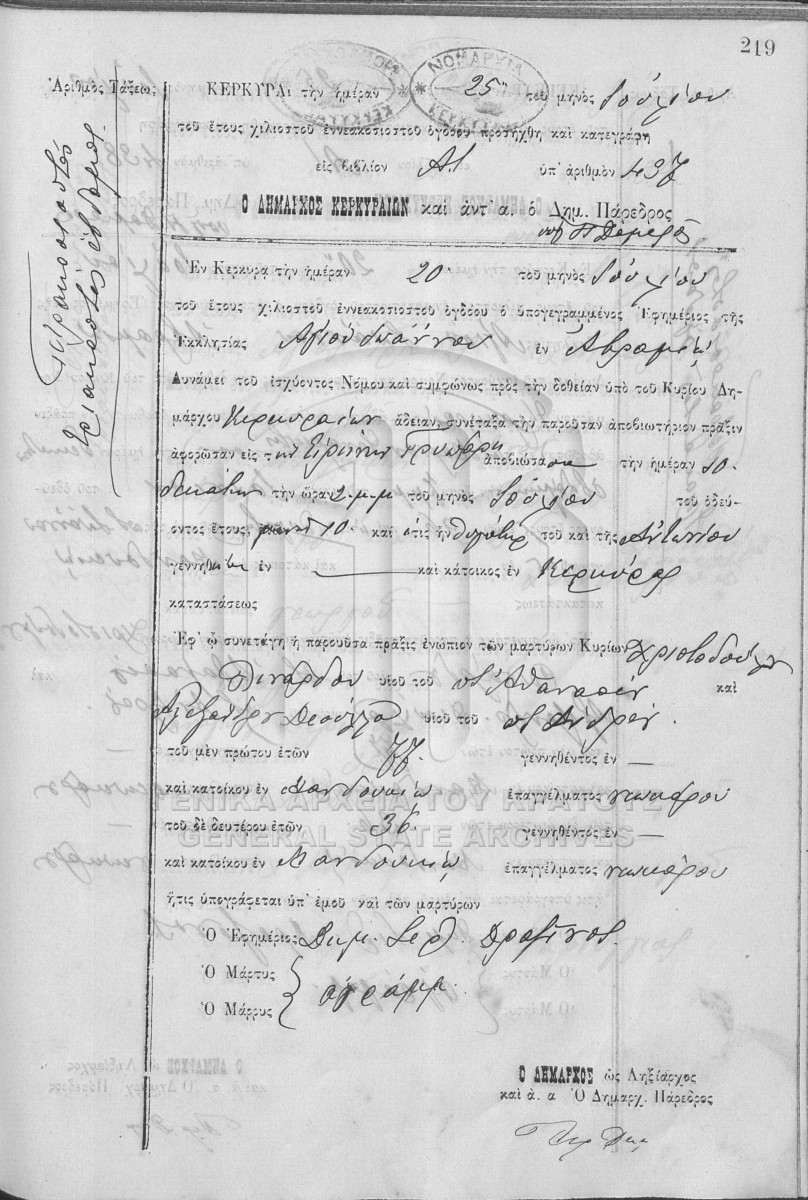 219
ΝΟΜΑΡΧΙΑ ΚΕΡΚΥΡΑΣ
Ἀριθμὸς Τάξεως
Τετρακοσιοστὸς
τριακοστὸς ἕβδομος
ΚΕΡΚΥΡΑι τὴν ἡμέραν 25 τοῦ μηνὸς Ἰουλίου
τοῦ ἔτους χιλιοστοῦ ἐννεακοσιοστοῦ ὀγδόου προσήχθη καὶ κατεγράφη
εἰς βιβλίον Α1 ὑπ' ἀριθμὸν 437
Ο ΔΗΜΑΡΧΟΣ ΚΕΡΚΥΡΑΙΩΝ καὶ ἀντ' α. ὁ Δημ. Πάρεδρος
Ἐν Κερκύρᾳ τὴν ἡμέραν 20 τοῦ μηνὸς Ἰουλίου
τοῦ ἔτους χιλιοστοῦ ἐννεακοσιοστοῦ ὀγδόου ὁ ὑπογεγραμμένος Ἐφημέριος τῆς
Ἐκκλησίας Ἁγίου Ἰωάννου ἐν
Δυνάμει τοῦ ἰσχύοντος Νόμου καὶ συμφώνως πρὸς τὴν δοθεῖσαν ὑπὸ τοῦ Κυρίου Δη-
μάρχου Κερκυραίων ἄδειαν, συνέταξα τὴν παροῦσαν ἀποβιωτήριον πρᾶξιν
ἀφορῶσαν εἰς τὴν Εἰρήνην ἀποβιώσασα τὴν ἡμέραν 10
δεκάτην τὴν ὥραν 2 μ.μ τοῦ μηνὸς Ἰουλίου τοῦ ὁδεύ-
οντος ἔτους, 10. καὶ ἥτις ἦν θυγάτηρ τοῦ καὶ τῆς Ἀντωνίου
γεννηθ ἐν — καὶ κάτοικος ἐν Κερκύρᾳ
καταστάσεως
Ἐφ' ᾧ συνετάγη ἡ παροῦσα πρᾶξις ἐνώπιον τῶν μαρτύρων Κυρίων Χριστοδούλου
υἱοῦ τοῦ ποτ Ἀθανασίου καὶ
Ἀλεξάνδρου υἱοῦ τοῦ ποτ Ἀνδρέου.
τοῦ μὲν πρώτου ἐτῶν 77. γεννηθέντος ἐν —
καὶ κατοίκου ἐν Μανδουκίῳ ἐπαγγέλματος
ΓΕΝΙΚΑ ΑΡΧΕΙΑ ΤΟΥ ΚΡΑΤΟΥΣ
τοῦ δὲ δευτέρου ἐτῶν 36. γεννηθέντος ἐν —
GENERAL STATE ARCHIVES
καὶ κατοίκου ἐν Μανδουκίῳ ἐπαγγέλματος
ἥτις ὑπογράφεται ὑπ' ἐμοῦ καὶ τῶν μαρτύρων
Ὁ Ἐφημέριος Δημ.
Ὁ Μάρτυς
ἀγράμμ.
Ὁ Μάρρυς
Ο ΔΗΜΑΡΧΟΣ ὡς Ληξίαρχος
καὶ ἀ. α Ὁ Δημαρχ. Πάρεδρος